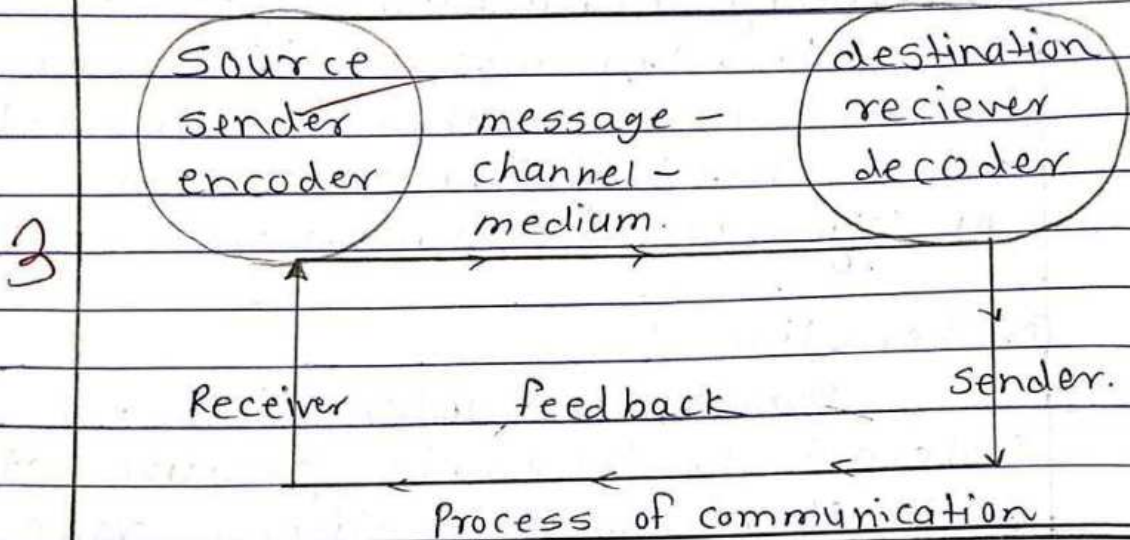 Source
sender
encoder
message -
channel -
medium.
destination
reciever
decoder
3
Receiver
feedback
Sender.
Process of communication.